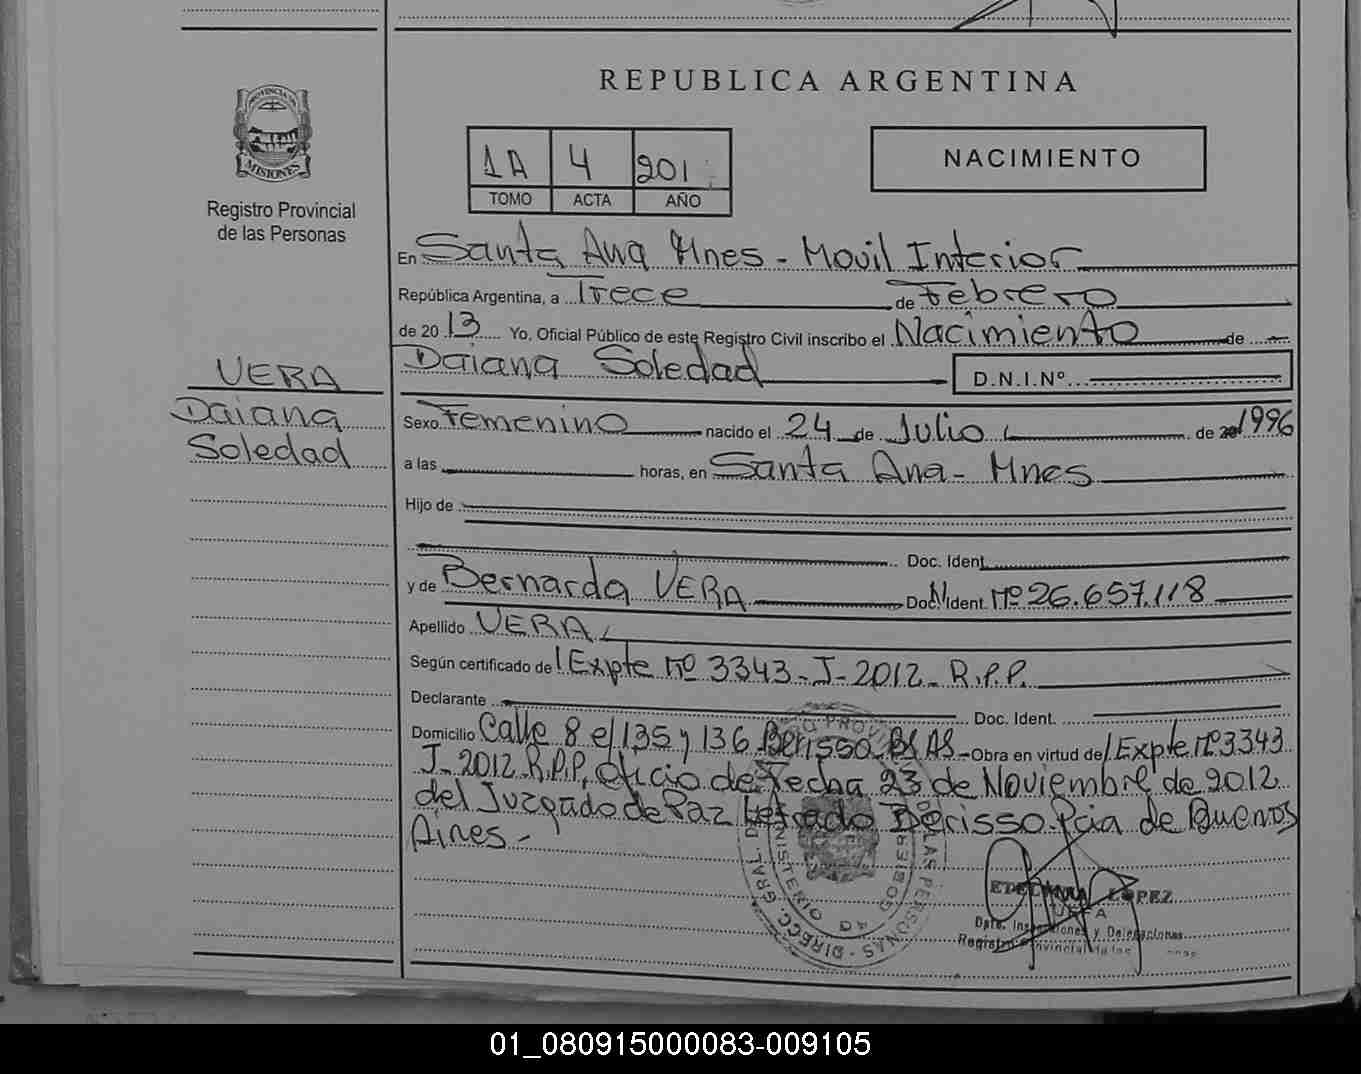 REPUBLICA ARGENTINA
PROVINCIA DE
MISIONES
Registro Provincial
de las Personas
1A 4 201
TOMO ACTA AÑO
NACIMIENTO
En Santa Ana Mnes - Movil Interior
República Argentina, a Trece de Febrero
de 2013 Yo, Oficial Público de este Registro Civil inscribo el Nacimiento de
VERA
Daiana
Soledad
Daiana Soledad D.N.I.Nº
Sexo Femenino nacido el 24 de Julio de 20 1996
a las horas, en Santa Ana - Mnes
Hijo de
Doc. Ident.
y de Bernarda VERA Doc. Ident. Nº 26.657.118
Apellido VERA
Según certificado de Expte nº 3343-J-2012- R.P.P.
Declarante Doc. Ident.
Domicilio Calle 8 e/135 y 136 Berisso BS AS - Obra en virtud de Expte Nº3343
J-2012-R.P.P, Oficio de Fecha 23 de Noviembre de 2012
del Juzgado de Paz Letrado Berisso-Pcia de Buenos
Aires -
LOPEZ
JEFA
Dpto. Inspecciones y Delegaciones
Registro Provincial de las
DIRECC. GRAL. DEL REGISTRO PROVINCIAL DE LAS PERSONAS
MINISTERIO DE GOBIERNO
01_080915000083-009105